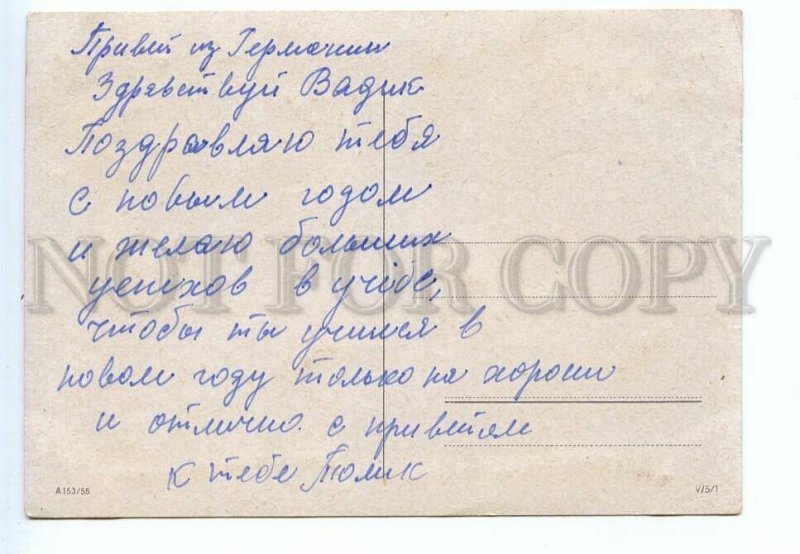 Привет из Германии
Здравствуй Вадик
Поздравляю тебя
с новым годом
и желаю больших
успехов в учёбе,
чтобы ты учился в
новом году только на хорошо
и отлично. с приветом
к тебе Толик
NOT FOR COPY
A 153/55
V/5/1